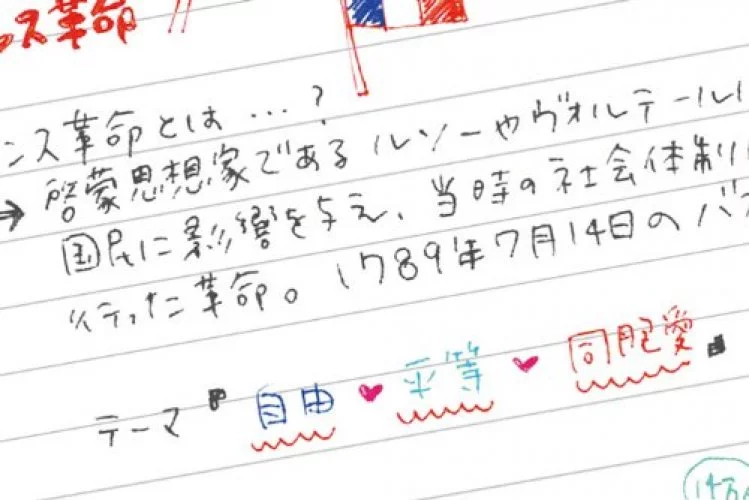 ンス革命
ンス革命とは…?
→ 啓蒙思想家である ルソーやヴォルテール
国民に影響を与え、当時の社会体制
行った革命。1789年7月14日のバ
テーマ "自由 ♥ 平等 ♥ 同胞愛"